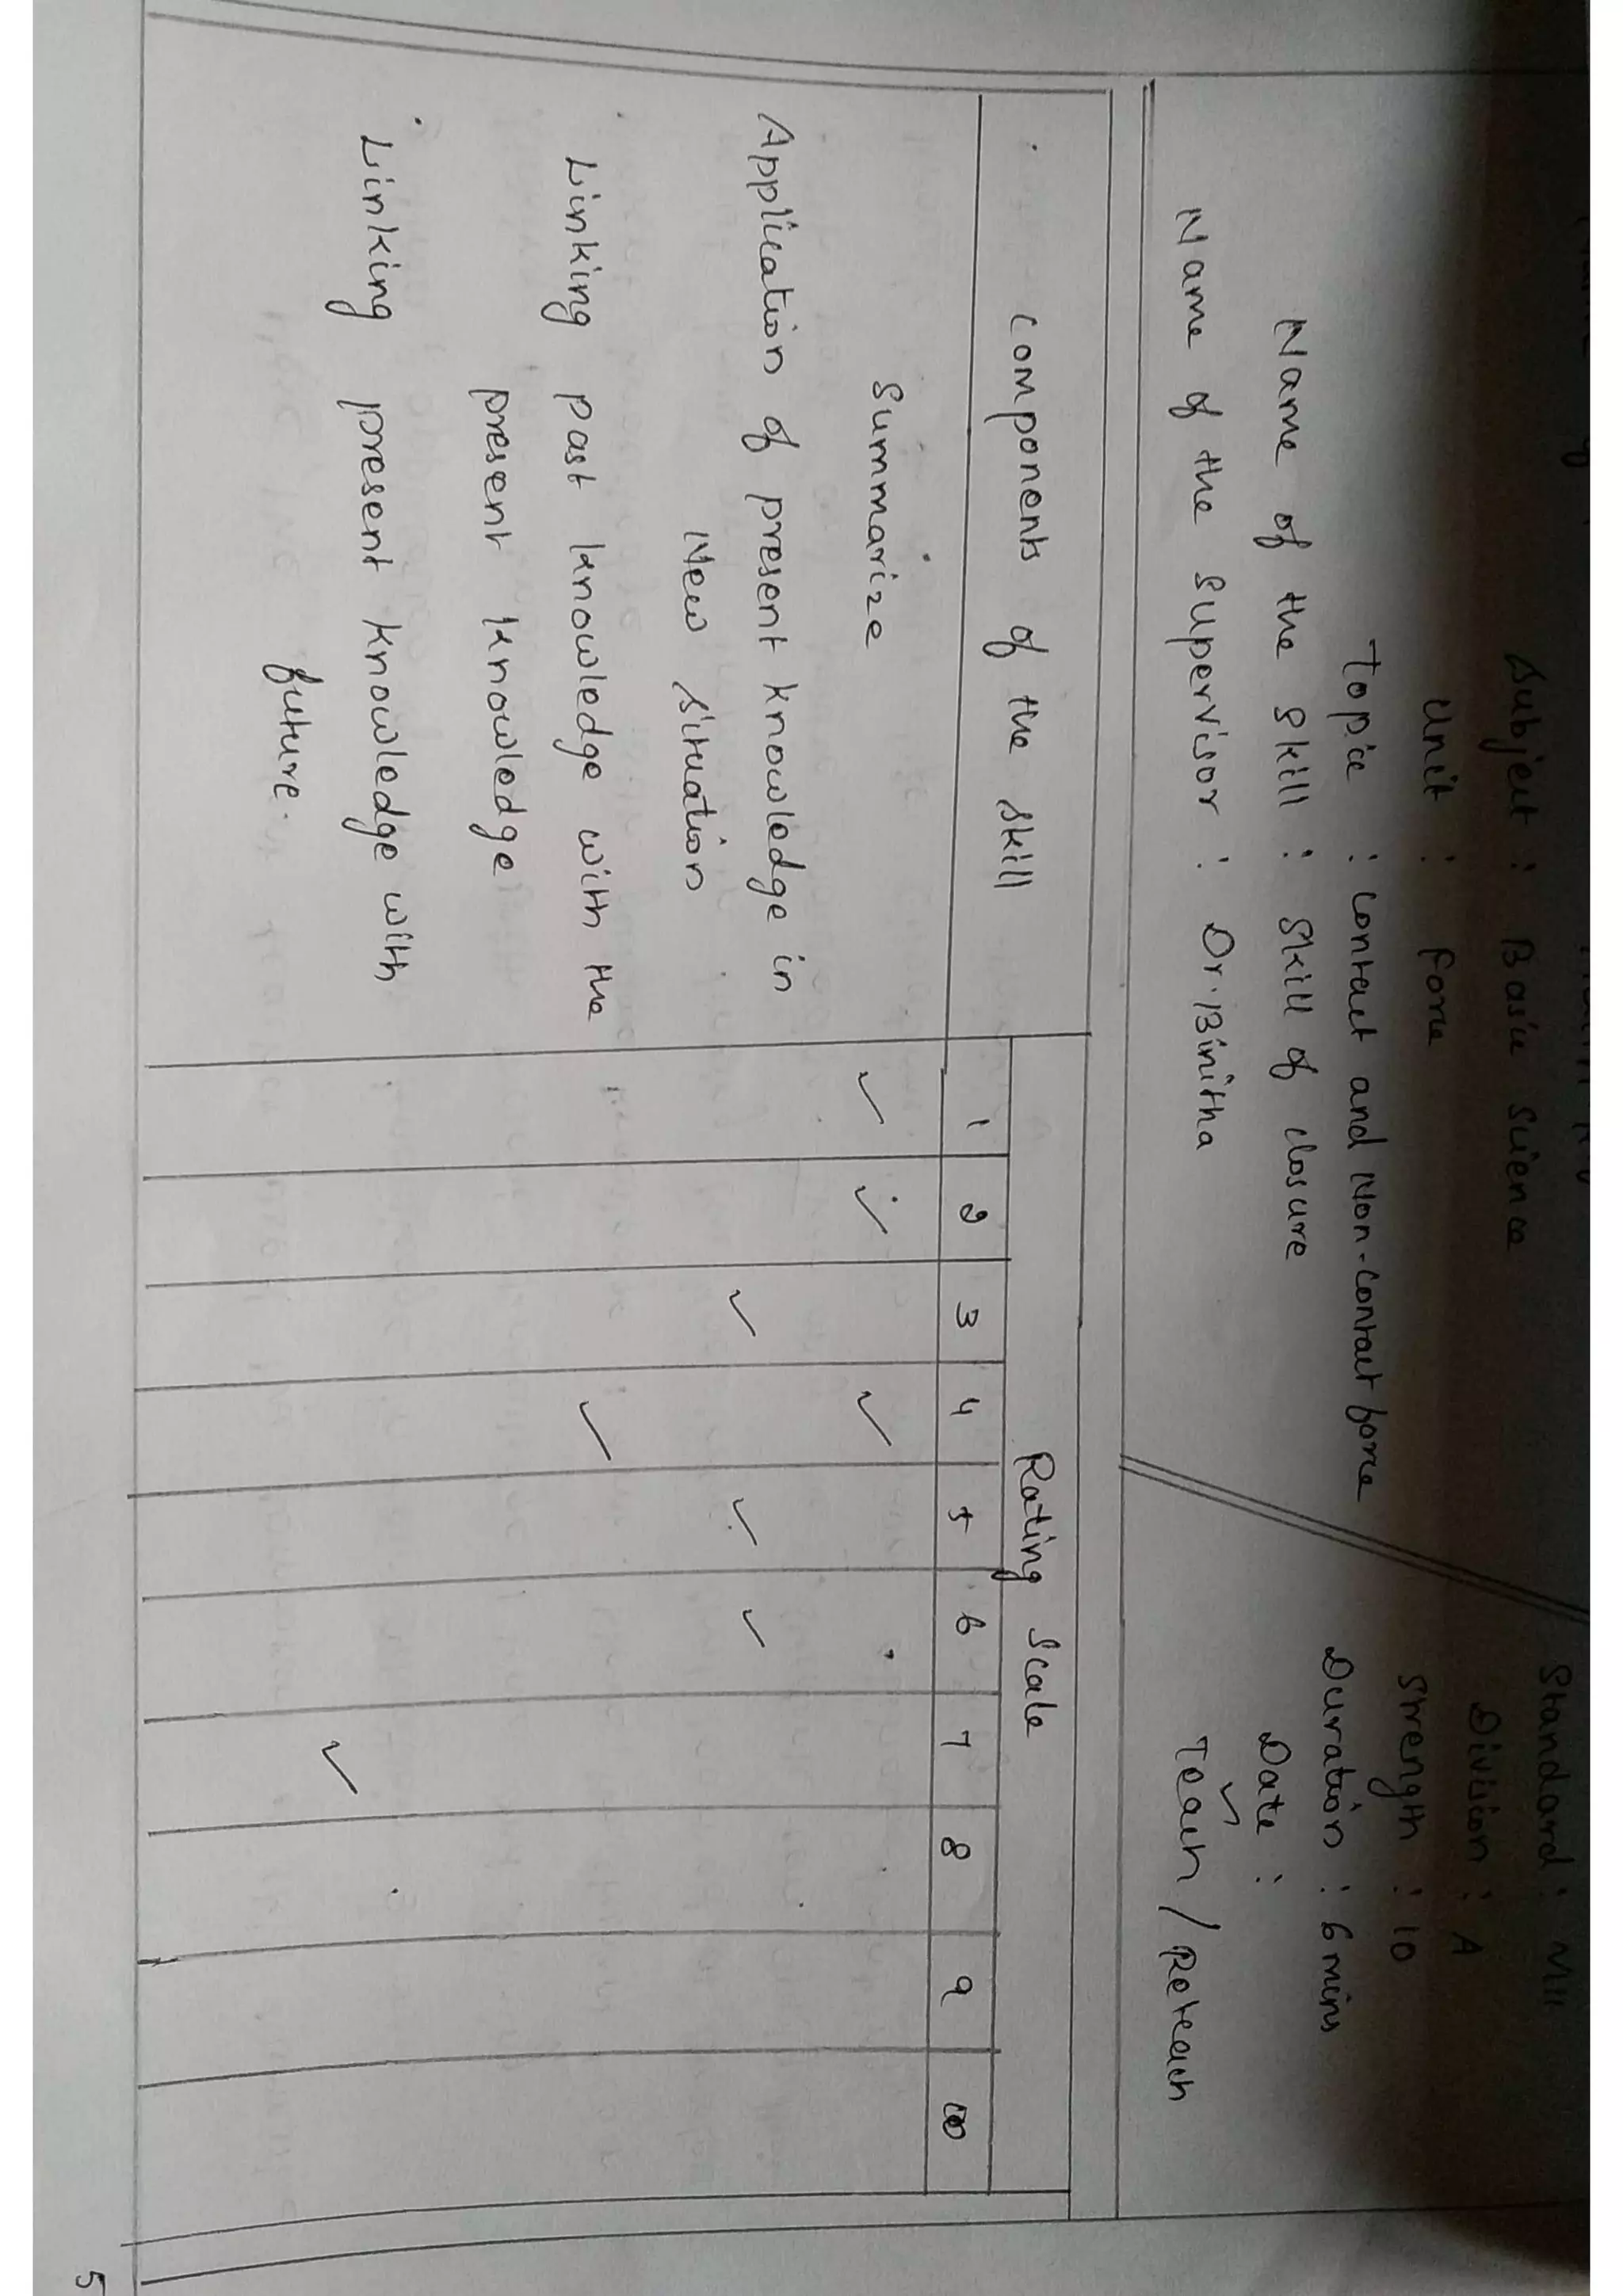 Subject : Basic science
Unit : Force
Topic : Contact and Non-contact force
Name of the skill : Skill of closure
Name of the Supervisor : Dr. Binitha
Standard : VIII
Division : A
Strength : 10
Duration : 6 mins
Date :
Teach / Reteach
✓
components of the skill
Rating Scale
1 2 3 4 5 6 7 8 9 10
Summarize ✓ ✓ ✓
Application of present knowledge in ✓ ✓ ✓
New situation
Linking past knowledge with the ✓
present knowledge
Linking present knowledge with ✓
future.
5